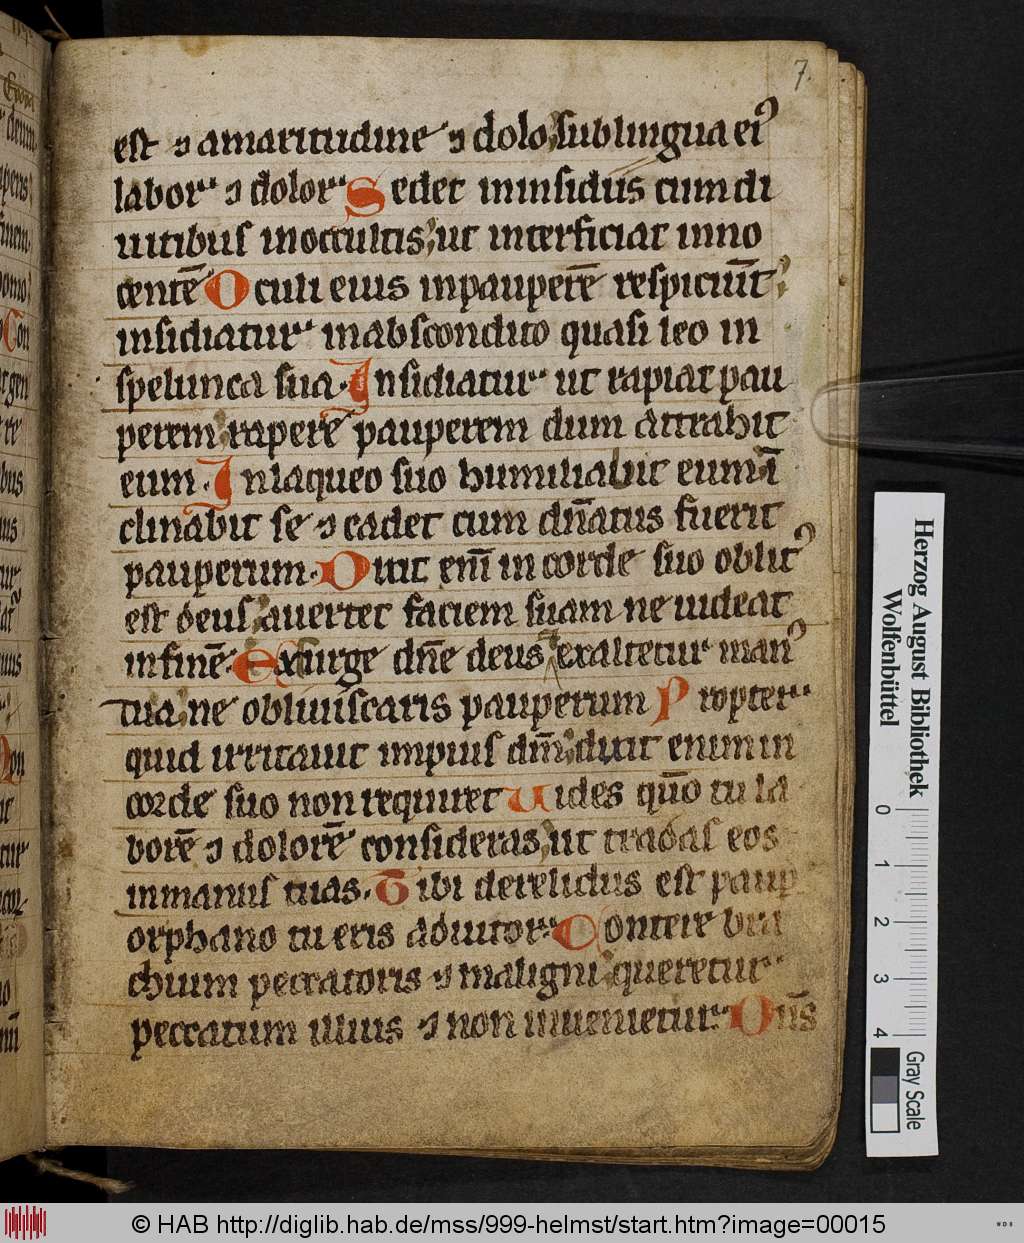 7.
est ⁊ amaritudine ⁊ dolo, sub lingua eiꝰ
labor ⁊ dolor Sedet in insidiis cum di
uitibus in occultis, ut interficiat inno
centē Oculi eius in pauperē respiciūt,
insidiatur in abscondito quasi leo in
spelunca sua. Insidiatur ut rapiat pau
perem rapere pauperem dum attrahit
eum. In laqueo suo humiliabit eum ī
clinabit se ⁊ cadet cum dn̄atus fuerit
pauperum. Dixit eni̅ in corde suo oblitꝰ
est deus, auertet faciem suam ne uideat
in finē. exsurge dn̄e deus exaltetur manꝰ
tua, ne obliuiscaris pauperum Propter
quid irritauit impius dm̄, dixit enim in
corde suo non requiret Uides quo̅ tu la
borē ⁊ dolorē consideras, ut tradas eos
in manus tuas. Tibi derelictus est paup
orphano tu eris adiutor. Contere bra
chium peccatoris ⁊ maligni, queretur
peccatum illius ⁊ non inuenietur. Dn̄s
Herzog August Bibliothek
Wolfenbüttel
0 1 2 3 4
Gray Scale
© HAB http://diglib.hab.de/mss/999-helmst/start.htm?image=00015
WDB